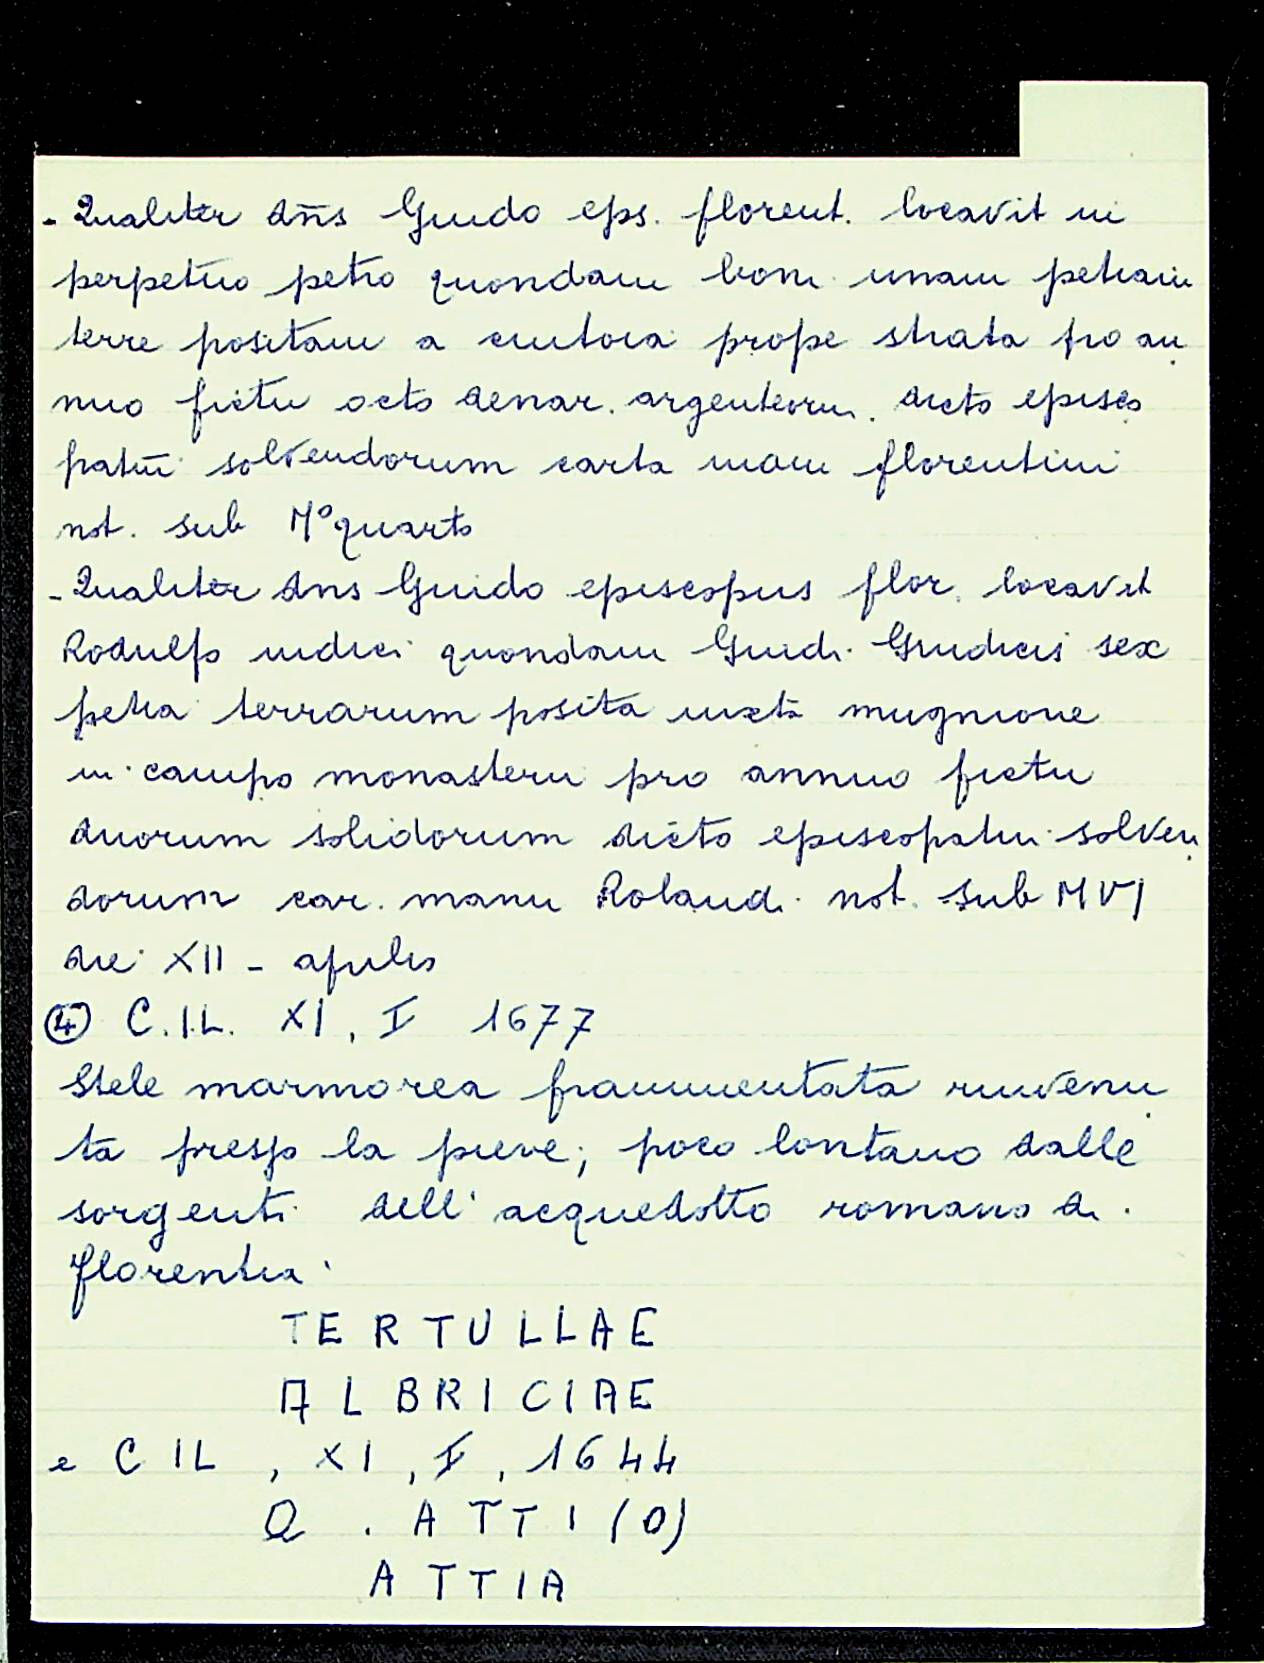 - Qualiter dñs Guido eps. florent. locavit in
perpetuo petro quondam boni unam petiam
terre positam a cintoia prope strata pro an
nuo fictu octo denar. argenteorum. dicto episco
patui solvendorum carta manu florentini
not. sub M° quarto
- Qualiter dns Guido episcopus flor. locavit
Rodulfo iudici quondam Guidi Giudicis sex
petia terrarum posita iuxta mugnione
in campo monasterii pro annuo fictu
duorum solidorum dicto episcopatui solven
dorum car. manu Rolandi not. sub MVI
die XII - aprilis
④ C.I.L. XI, I 1677
Stele marmorea frammentata rinvenu
ta presso la pieve; poco lontano dalle
sorgenti dell'acquedotto romano di
florentia.
TERTULLAE
ALBRICIAE
e CIL, XI, I, 1644
Q . ATTI (O)
ATTIA